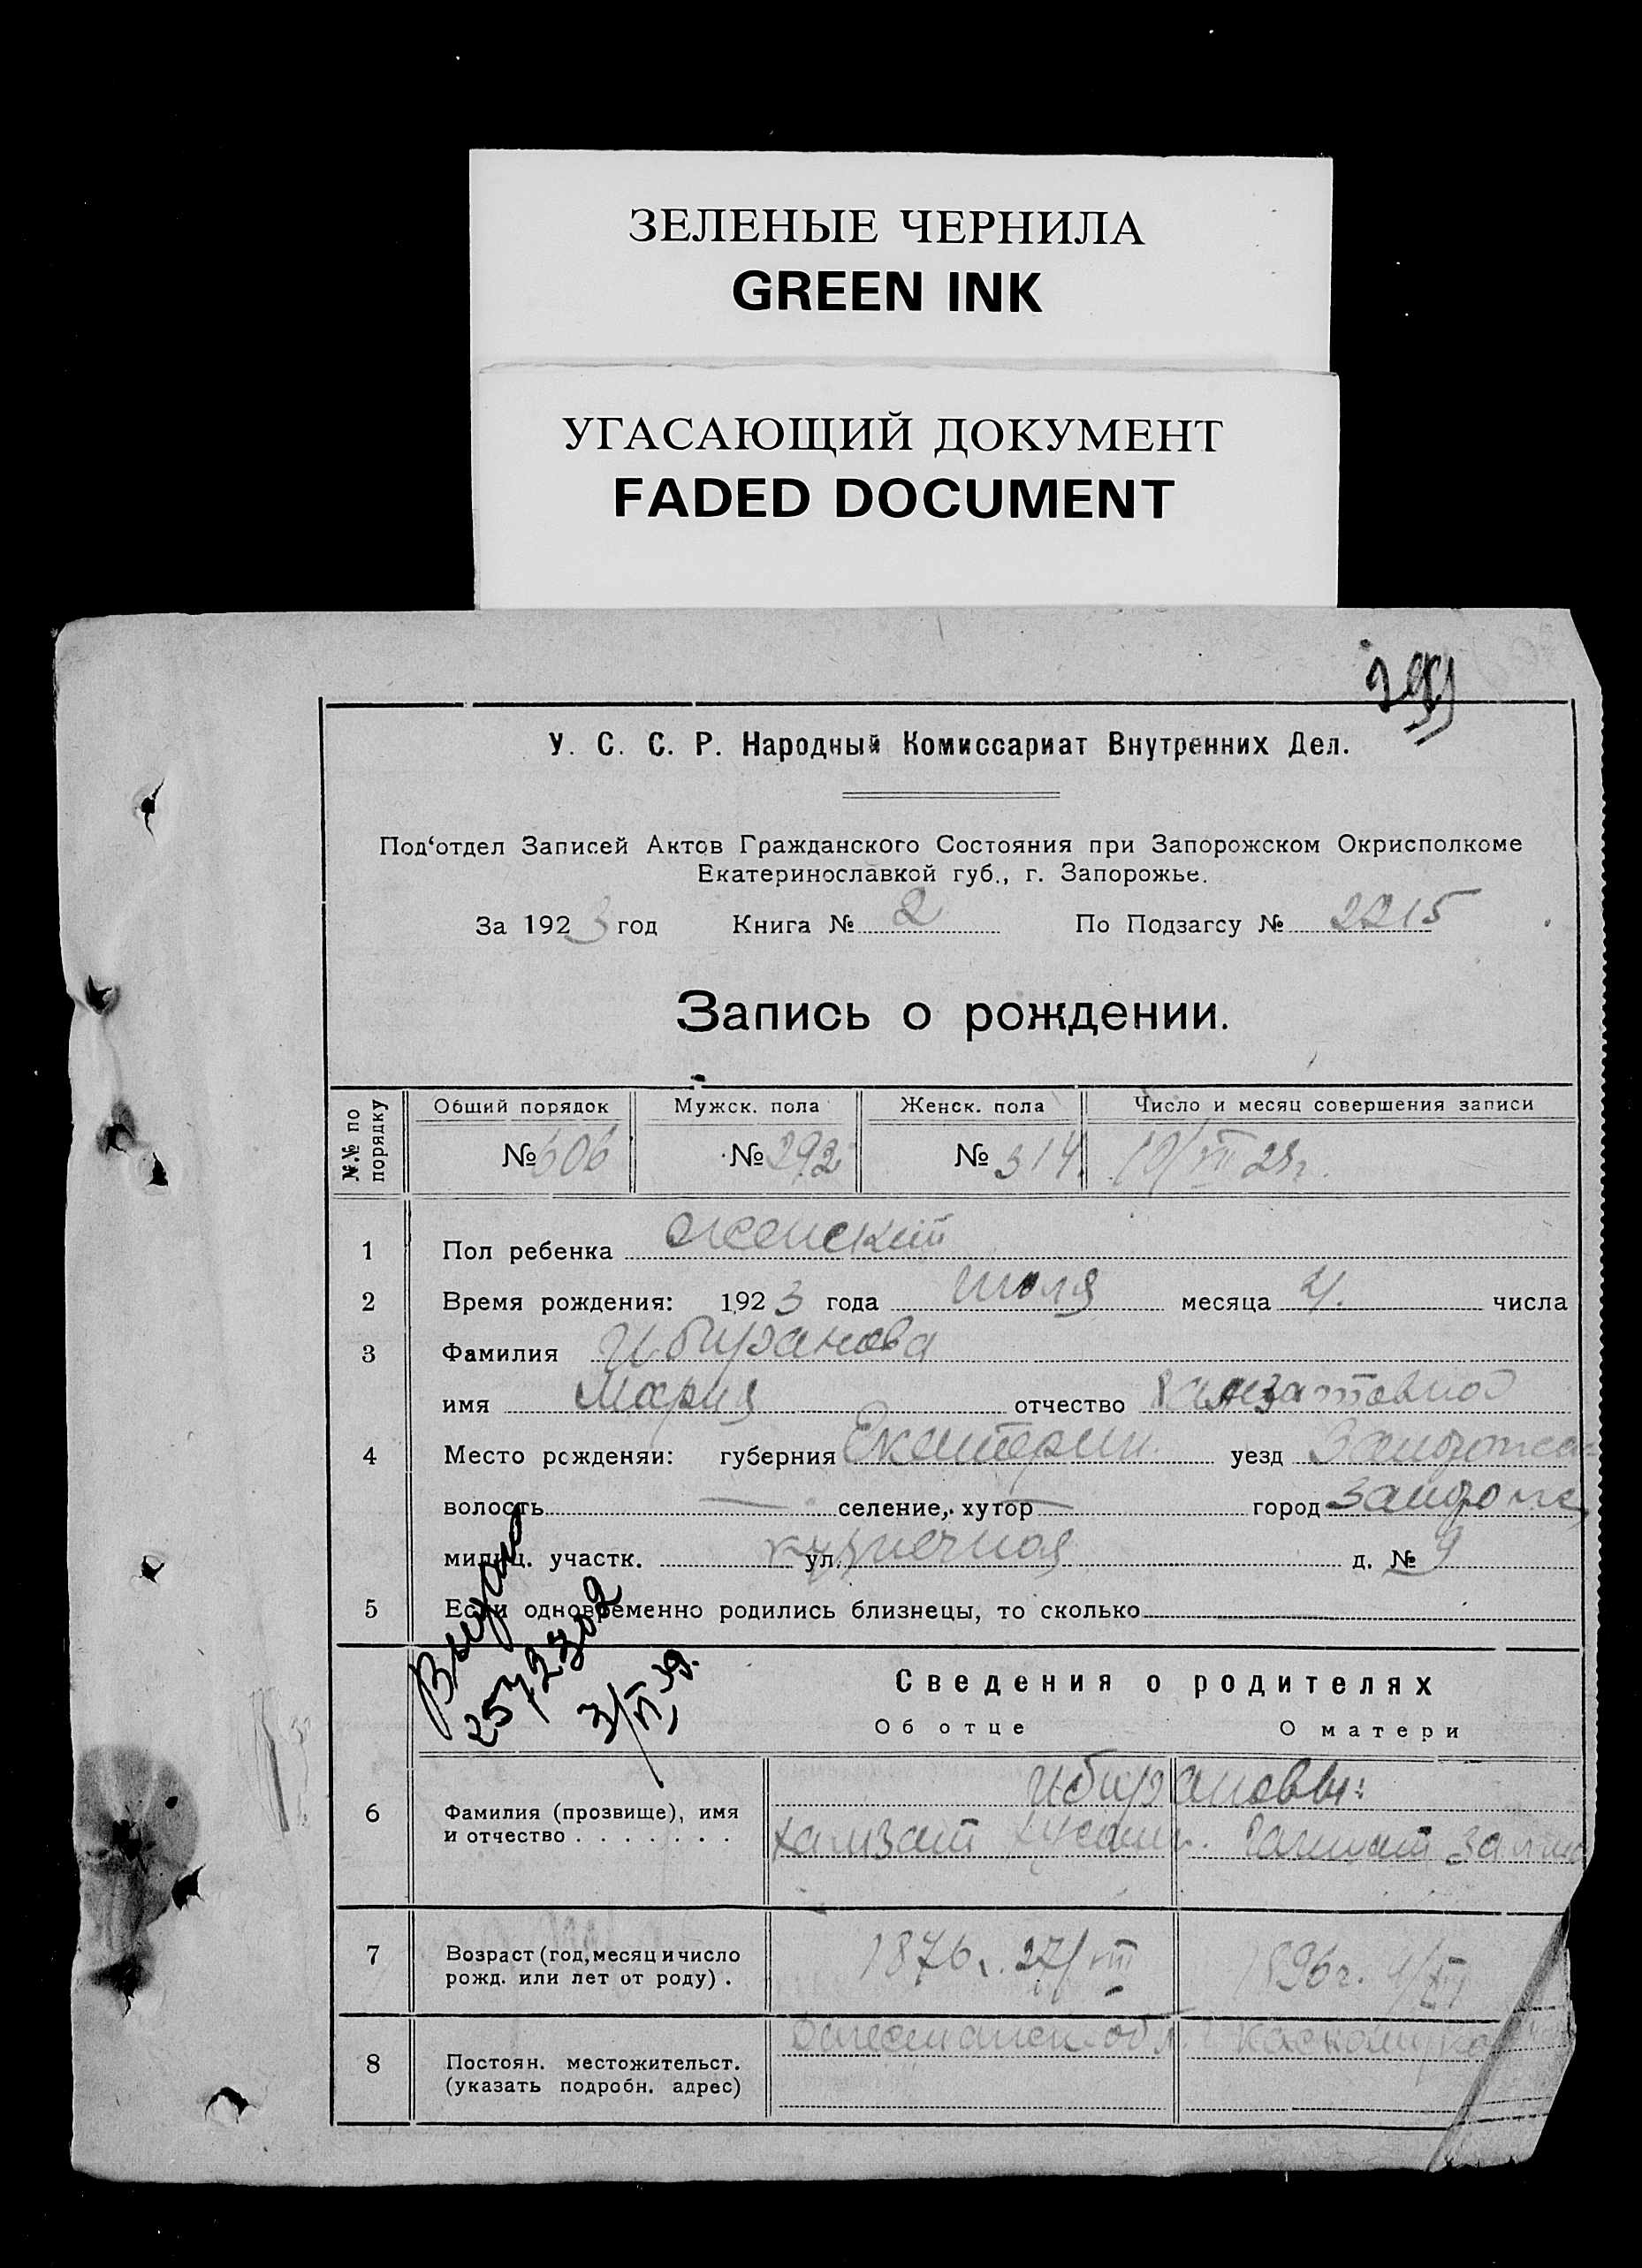 ЗЕЛЕНЫЕ ЧЕРНИЛА
GREEN INK
УГАСАЮЩИЙ ДОКУМЕНТ
FADED DOCUMENT
У. С. С. Р. Народный Комиссариат Внутренних Дел.
Под‘отдел Записей Актов Гражданского Состояния при Запорожском Окрисполкоме
Екатеринославкой губ., г. Запорожье.
За 1923 год Книга № 2 По Подзагсу № 2215
Запись о рождении.
№.№ по порядку Обший порядок Мужск. пола Женск. пола Число и месяц совершения записи
№ 606 № 292 № 314 10/VII 23г.
1 Пол ребенка женский
2 Время рождения: 1923 года июля месяца 4. числа
3 Фамилия Ибиранова
имя Мария отчество
4 Место рожденяи: губерния Екатерин. уезд Запорож
волость селение, хутор город Запорож
милиц. участк. ул. кузнечная д. № 9
5 Если одновременно родились близнецы, то сколько
Выдано
257302
3/VI 39.
Сведения о родителях
Об отце О матери
Ибирановы:
6 Фамилия (прозвище), имя
и отчество . . . . . . . Хамзат
7 Возраст (год, месяц и число
рожд. или лет от роду) . 1876г. 27/VIII 1896г.
8 Постоян. местожительст.
(указать подробн. адрес) Дагестанск. обл.